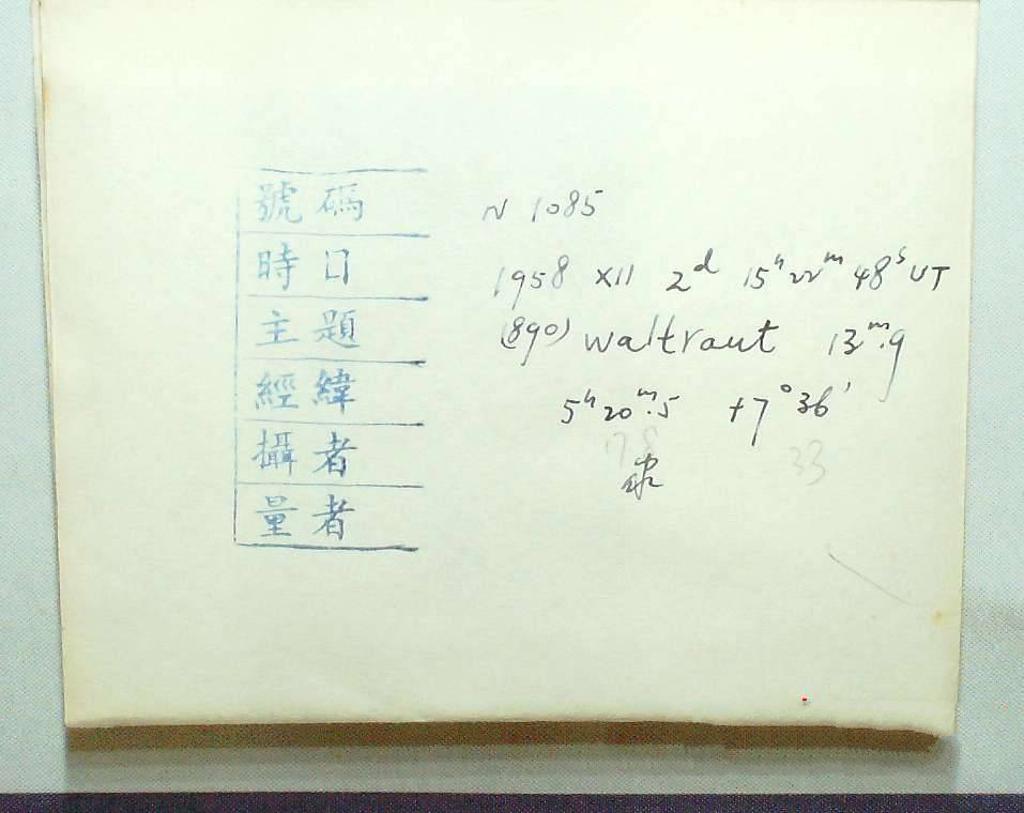 號碼 N 1085
時日 1958 XII 2ᵈ 15ʰ22ᵐ 48ˢ UT
主題 (890) waltraut 13ᵐ.9
經緯 5ʰ20ᵐ.5 +7°36'
17 8 33
攝者
量者